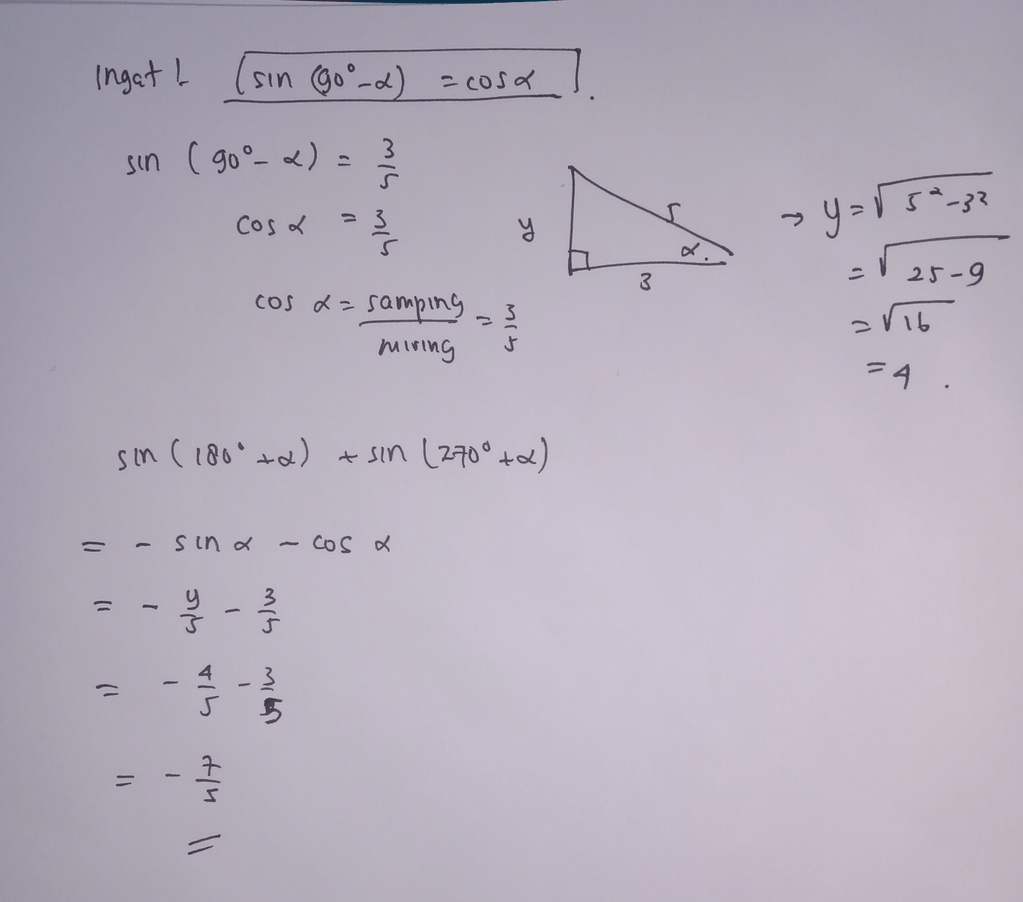 Ingat! [sin (90°-α) = cos α].
sin (90°- α) = 3/5
cos α = 3/5
cos α = samping/miring = 3/5
y
5
α.
3
→ y = √5²-3²
= √25-9
= √16
= 4.
sin (180°+α) + sin (270°+α)
= - sin α - cos α
= - y/5 - 3/5
= - 4/5 - 3/5
= - 7/5